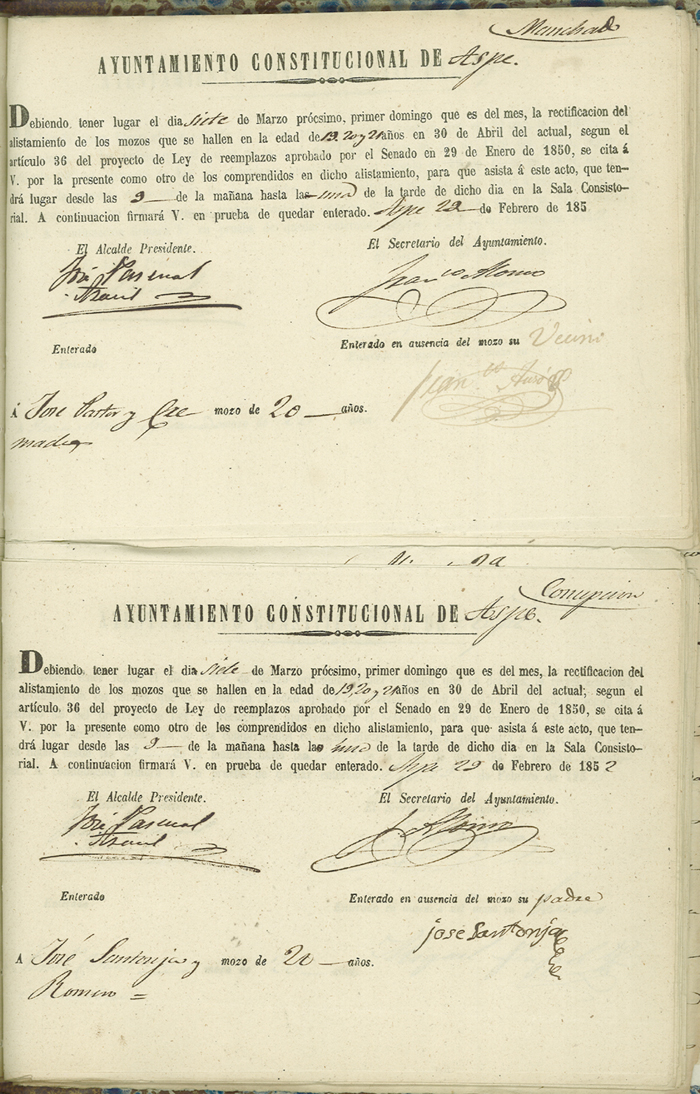 AYUNTAMIENTO CONSTITUCIONAL DE Aspe.
Debiendo tener lugar el dia siete de Marzo prócsimo, primer domingo que es del mes, la rectificacion del
alistamiento de los mozos que se hallen en la edad de 19, 20 y 21 años en 30 de Abril del actual, segun el
artículo 36 del proyecto de Ley de reemplazos aprobado por el Senado en 29 de Enero de 1850, se cita á
V. por la presente como otro de los comprendidos en dicho alistamiento, para que asista á este acto, que ten-
drá lugar desde las 9 de la mañana hasta las una de la tarde de dicho dia en la Sala Consisto-
rial. A continuacion firmará V. en prueba de quedar enterado. Aspe 29 de Febrero de 185
El Alcalde Presidente. El Secretario del Ayuntamiento.
José Pascual Franco Alonso
Enterado Enterado en ausencia del mozo su Vecino
Á José Pastor y Cre- mozo de 20 años.
mades
AYUNTAMIENTO CONSTITUCIONAL DE Aspe.
Concepcion
Debiendo tener lugar el dia siete de Marzo prócsimo, primer domingo que es del mes, la rectificacion del
alistamiento de los mozos que se hallen en la edad de 19, 20 y 21 años en 30 de Abril del actual, segun el
artículo 36 del proyecto de Ley de reemplazos aprobado por el Senado en 29 de Enero de 1850, se cita á
V. por la presente como otro de los comprendidos en dicho alistamiento, para que asista á este acto, que ten-
drá lugar desde las 9 de la mañana hasta las una de la tarde de dicho dia en la Sala Consisto-
rial. A continuacion firmará V. en prueba de quedar enterado. Aspe 29 de Febrero de 1852
El Alcalde Presidente. El Secretario del Ayuntamiento.
José Pascual Alonso
Enterado Enterado en ausencia del mozo su padre
jose Santonja
A José Santonja y mozo de 20 años.
Romero =